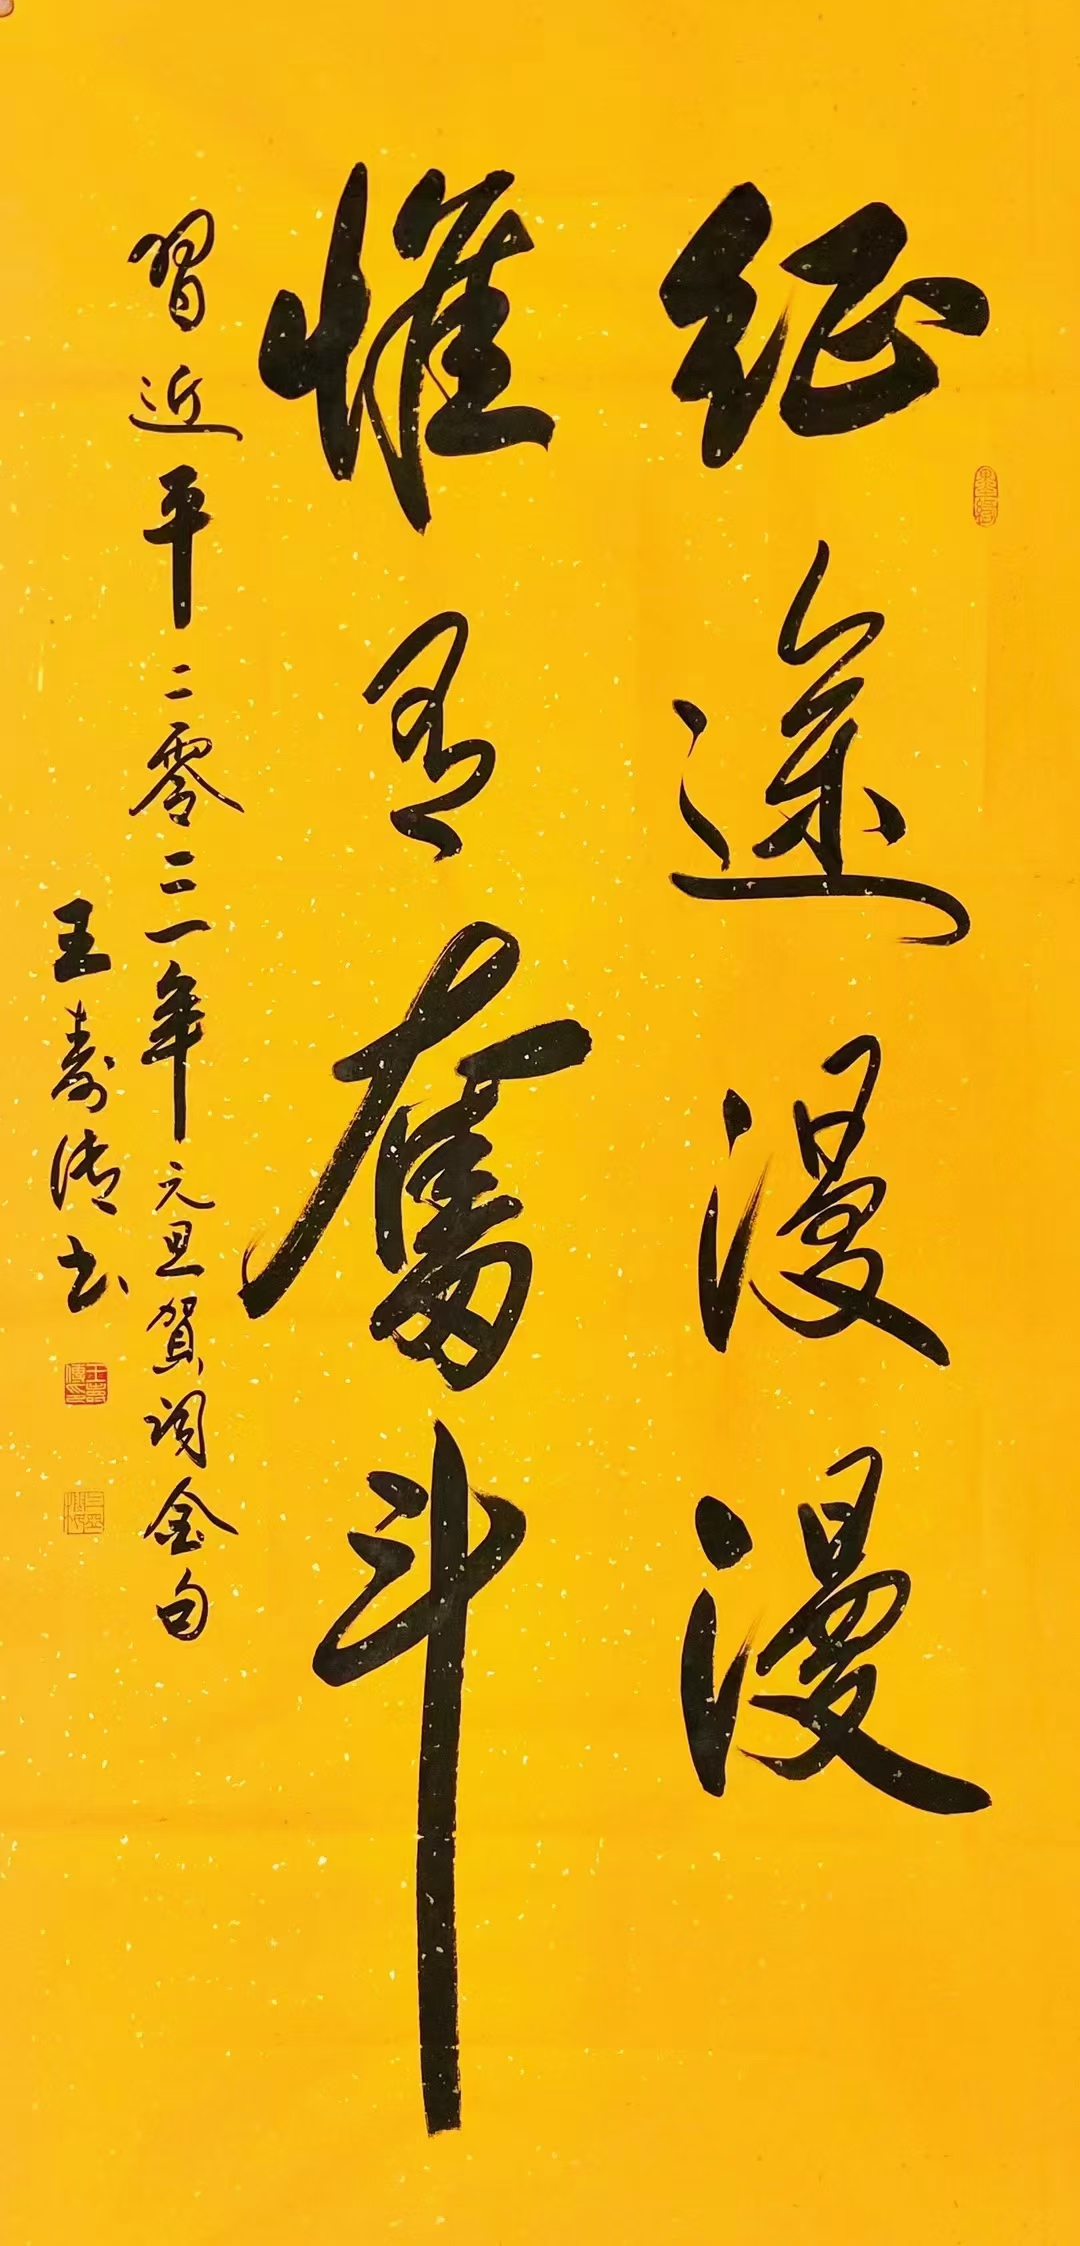 征途漫漫
惟有奋斗
習近平二零二一年元旦賀词金句
王寿传书